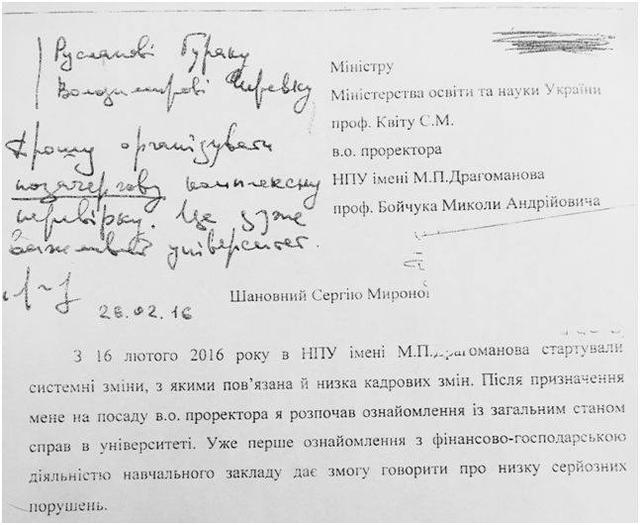 Русланові Гураку
Володимирові Черевку
Прошу організувати
позачергову комплексну
перевірку. Це дуже
важливий університет.
26.02.16
Міністру
Міністерства освіти та науки України
проф. Квіту С.М.
в.о. проректора
НПУ імені М.П.Драгоманова
проф. Бойчука Миколи Андрійовича
Шановний Сергію Мироної
З 16 лютого 2016 року в НПУ імені М.П.Драгоманова стартували
системні зміни, з якими пов'язана й низка кадрових змін. Після призначення
мене на посаду в.о. проректора я розпочав ознайомлення із загальним станом
справ в університеті. Уже перше ознайомлення з фінансово-господарською
діяльністю навчального закладу дає змогу говорити про низку серйозних
порушень.